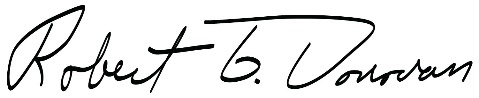 Robert G. Donovan